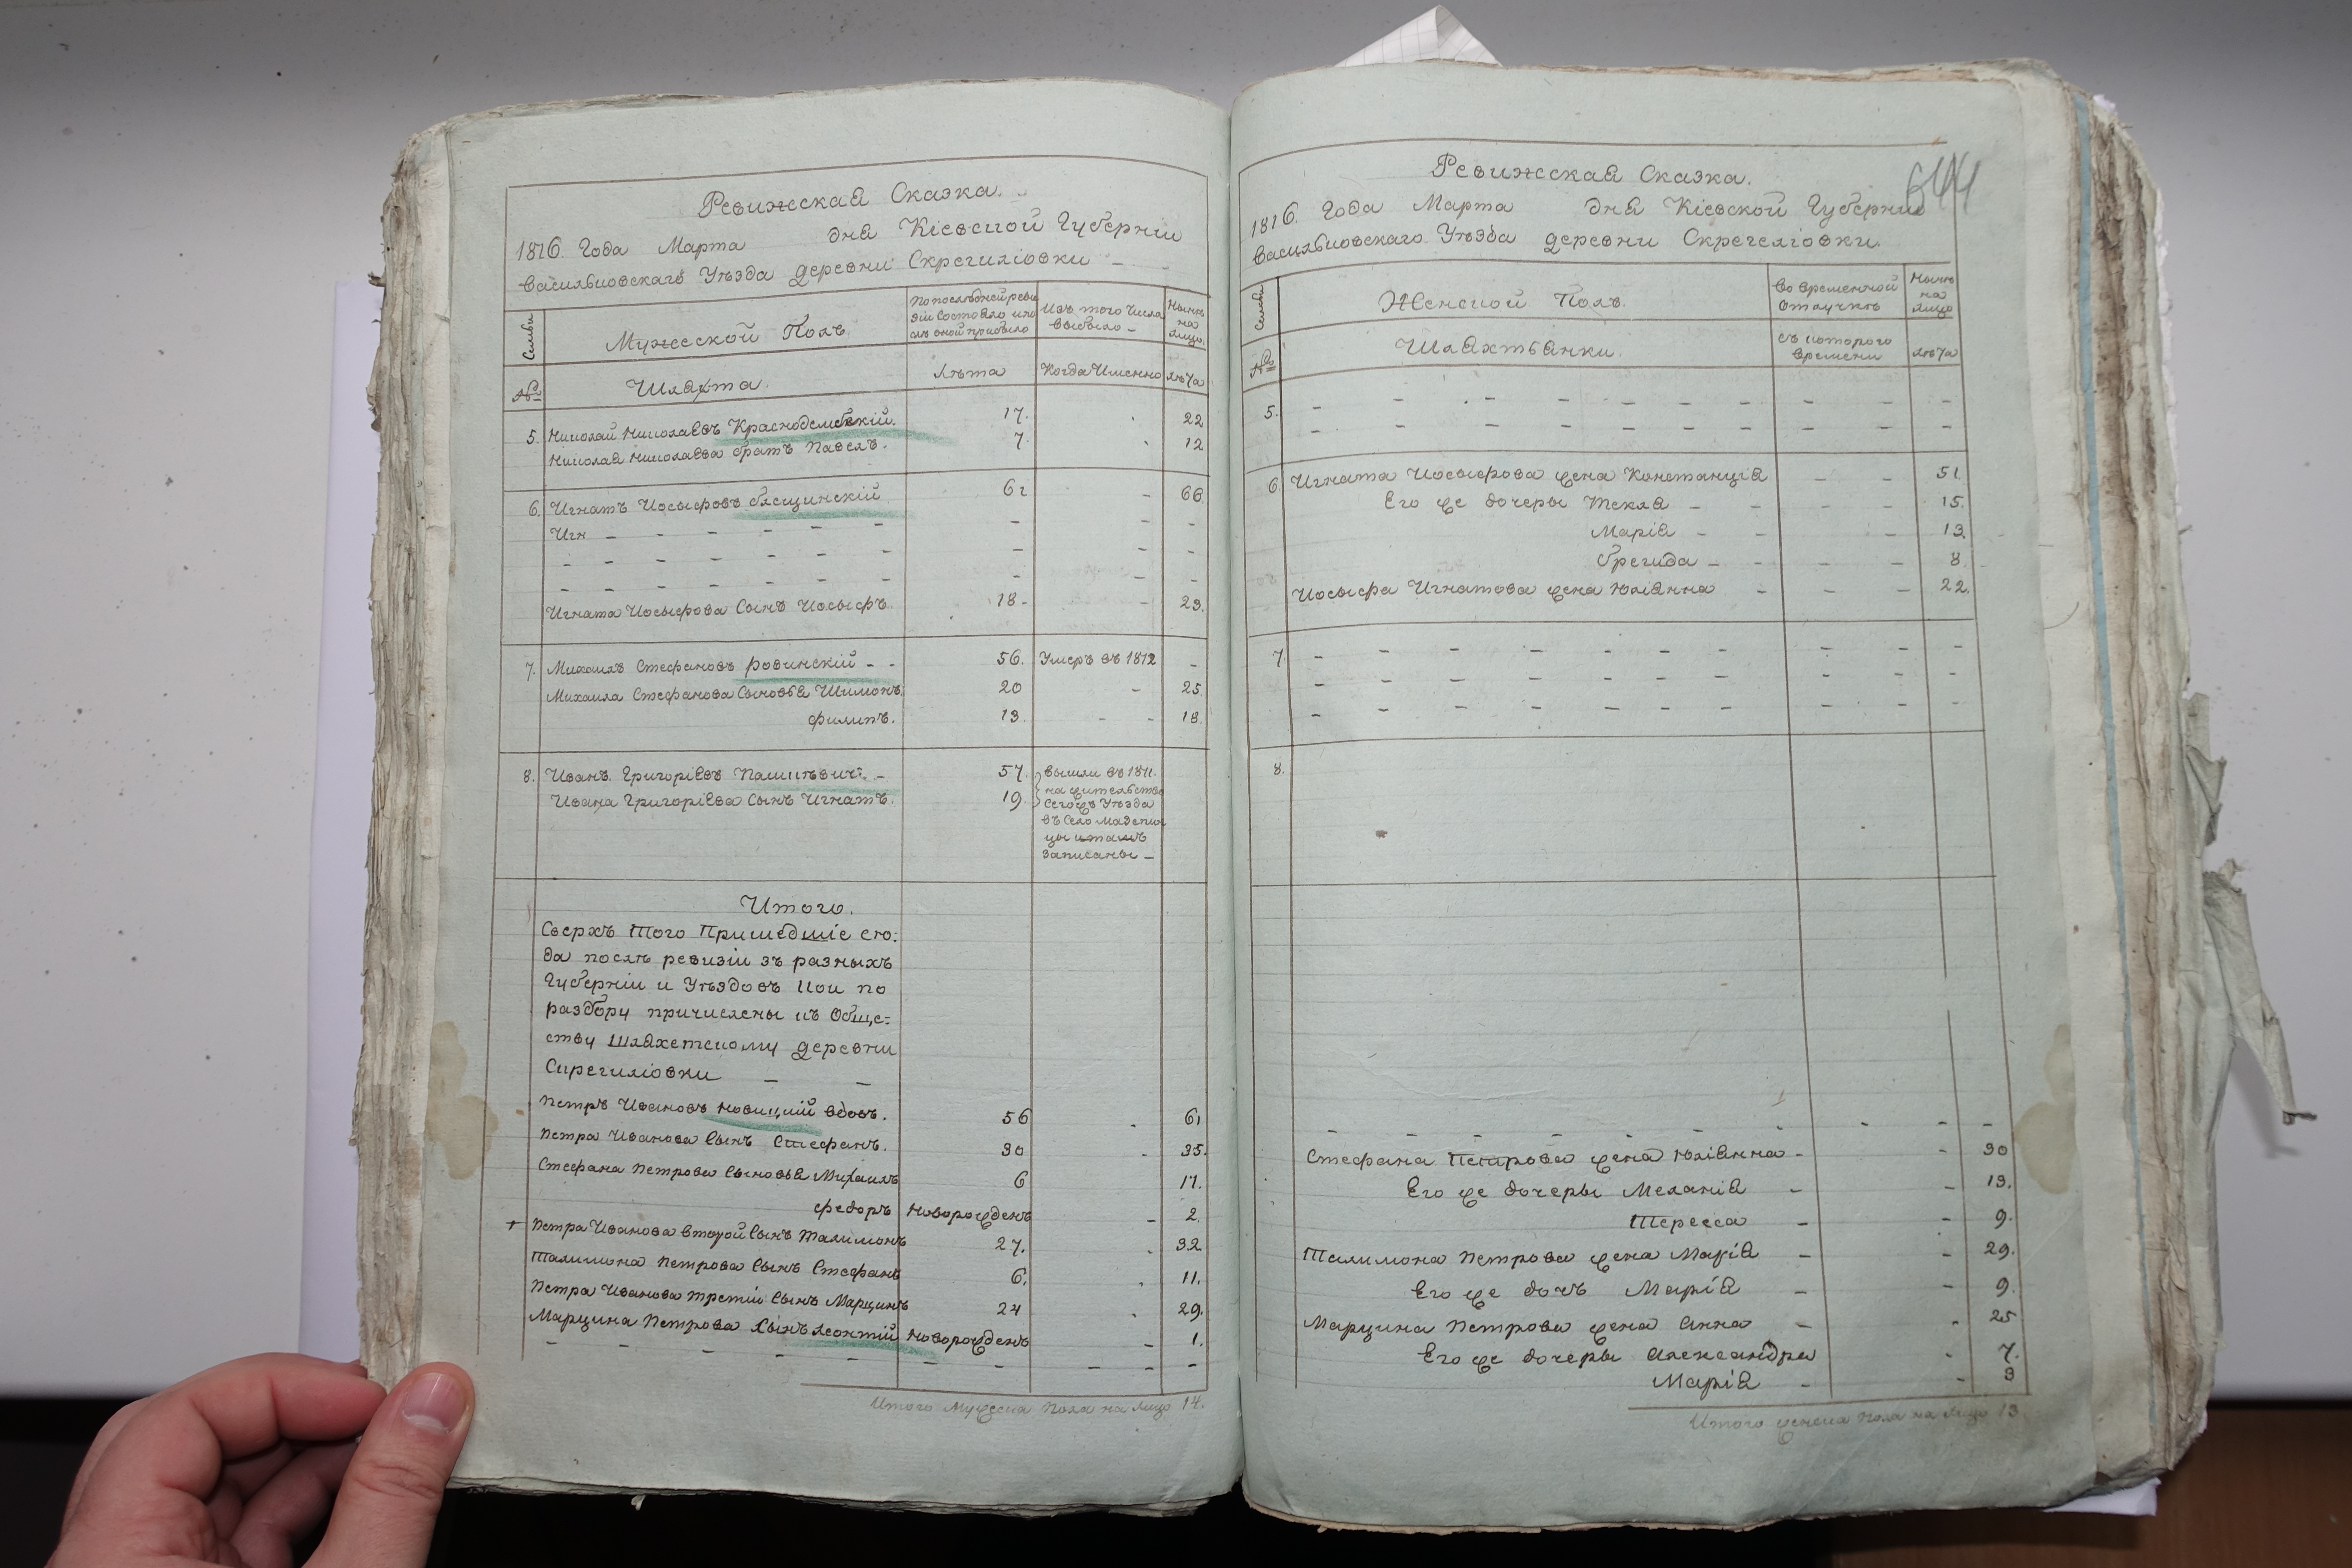 Ревижская Сказка.
1816. Года Марта дня Кіевской Губерніи
Васильковскаго Уѣзда деревни Скрегиліовки
Семьи
Мужеской Полъ.
По послѣдней реви
зіи Состояло и по
слѣ оной прибыло
Изъ того Числа
выбыло
Нынѣ
на
лицо
№
Шляхта.
лѣта
Когда Именно
лѣта
5. Николай Николаевъ Краснодембскій. 17. 22
Николая Николаева братъ Павелъ. 7. 12
6. Игнатъ Иосыфовъ 61 66
Игн
Игната Иосыфова Сынъ Иосыфъ 18 23.
7. Михаилъ Стефановъ ровинскій 56. Умеръ въ 1812
Михаила Стефанова Сыновья Шимонъ 20 25.
филипъ. 13 18
8. Иванъ Григоріевъ 57 вышли въ 1811.
Ивана Григоріева Сынъ Игнатъ. 19 на жительство
Сегожъ Уѣзда
въ Село Мазепин
цы и тамъ
Записаны
Итого.
Сверхъ того Пришедшіе сю:
да послѣ ревизіи зъ разныхъ
Губерніи и Уѣздовъ кои по
разбору причислены къ Обще=
ству шляхетскому деревни
Скрегиліовки
Петръ Ивановъ новицкій вдовъ. 56 61
Петра Иванова Сынъ Стефанъ. 30 35.
Стефана Петрова Сыновья Михаилъ 6 11.
федоръ Новорожденъ 2.
+ Петра Иванова второй Сынъ Талимонъ 27. 32
Талимона Петрова Сынъ Стефанъ 6. 11.
Петра Иванова третій Сынъ Марцинъ 24 29.
Марцина Петрова Сынъ леонтій Новорожденъ 1.
Итого Мужеска Пола на лицо 14.
Ревижская Сказка.
1816. Года Марта дня Кіевской Губерніи
Васильковскаго Уѣзда деревни Скрегеліовки
Семьи
Женской Полъ.
Во временной
отлучкѣ
Нынѣ
на
лицо
№
Шляхтьянки.
съ которого
времени
лѣта
5.
6. Игната Иосыфова жена Констанція 51.
Его же дочеры Текля 15.
Марія 13.
бригида 8
Иосыфа Игнатова жена Юліянна 22.
7
8.
Стефана Петрова жена Юліянна 30
Его же дочеры Меланія 13.
Тересса 9.
Талимона Петрова жена Марія 29.
Его же дочъ Марія 9.
Марцина Петрова жена Анна 25
Его же дочеры Александра 7.
Марія 3
Итого женска пола на лицо 13